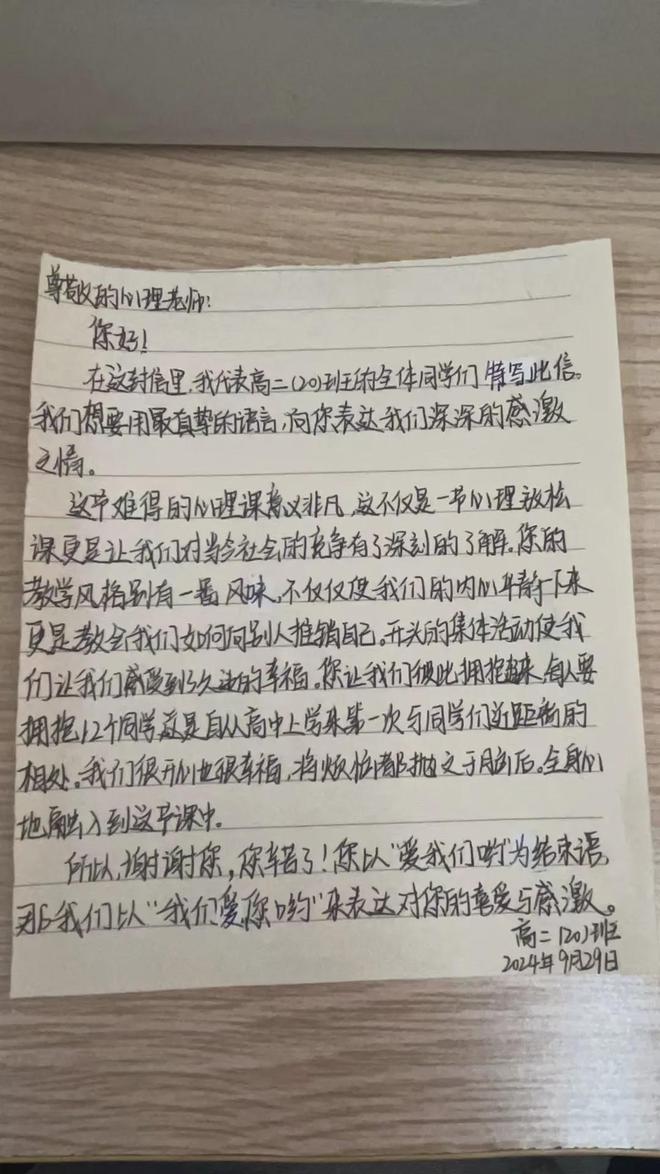 尊敬的心理老师:
你好!
在这封信里,我代表高二(20)班的全体同学们特写此信。
我们想要用最真挚的语言,向你表达我们深深的感激
之情。
这节难得的心理课意义非凡,这不仅是一节心理放松
课更是让我们对当今社会的竞争有了深刻的了解。您的
教学风格别有一番风味,不仅仅使我们的内心平静下来
更是教会我们如何向别人推销自己。开头的集体活动使我
们让我们感受到了久违的幸福。您让我们彼此拥抱起来,每人要
拥抱12个同学这是自从高中上学来第一次与同学们近距离的
相处。我们很开心也很幸福,将烦恼都抛之于脑后。全身心
地融入到这节课中。
所以,谢谢您,您辛苦了!您以“爱我们哟”为结束语,
那我们以“我们爱您哟”来表达对你的喜爱与感激。
高二(20)班
2024年9月29日